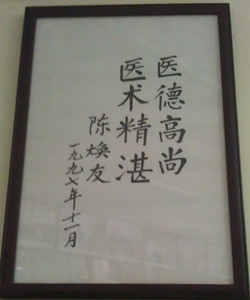 医德高尚
医术精湛
陈焕友
一九九七年十一月